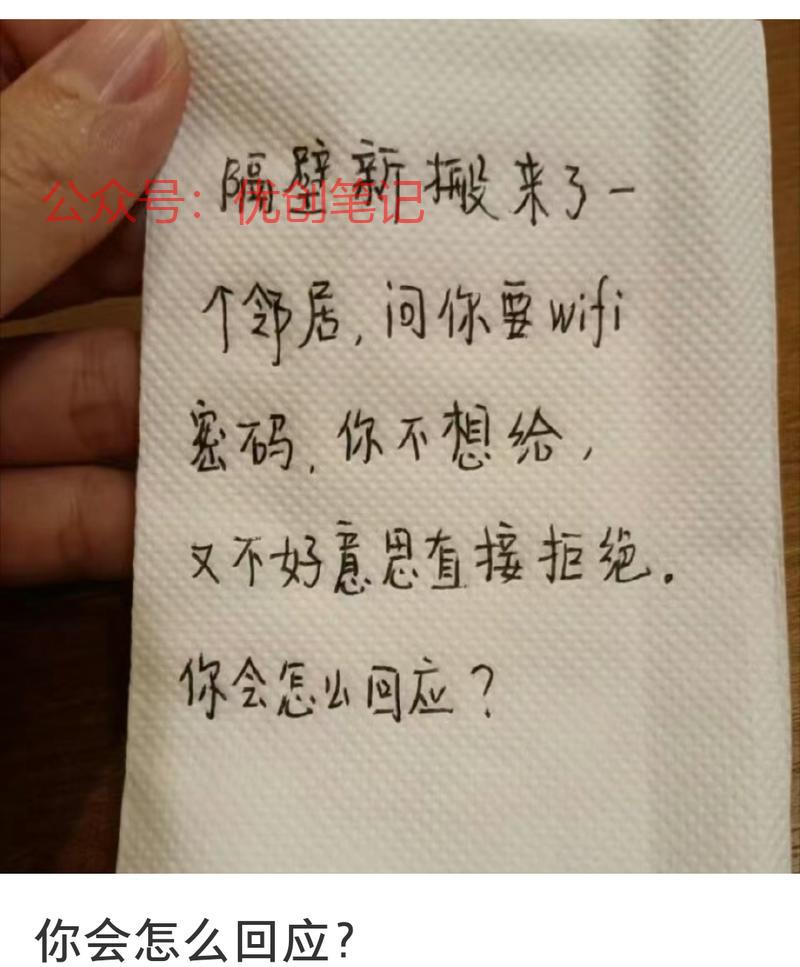 隔壁新搬来了一
公众号：优创笔记
个邻居，问你要wifi
密码，你不想给，
又不好意思直接拒绝。
你会怎么回应？
你会怎么回应？